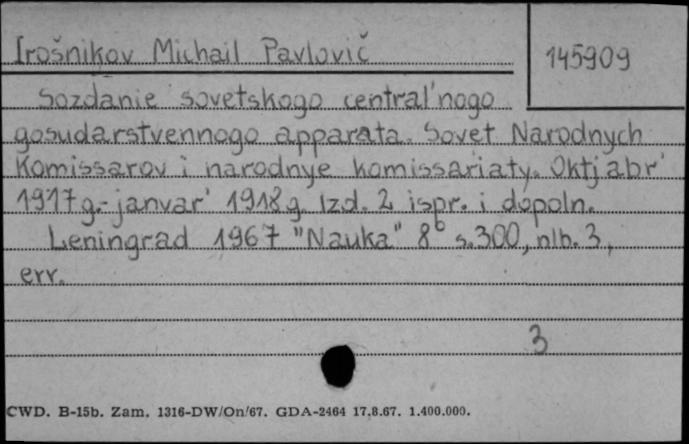 Irošnikov Michail Pavlovič
145909
Sozdanie sovetskogo central'nogo
gosudarstvennogo apparata. Sovet Narodnych
Komissarov i narodnye komissariaty. Oktjabr'
1917 g.- janvar' 1918 g. Izd. 2 ispr. i dopoln.
Leningrad 1967 "Nauka" 8° s. 300, nlb. 3,
err.
3
CWD. B-15b. Zam. 1316-DW/On/67. GDA-2464 17.8.67. 1.400.000.